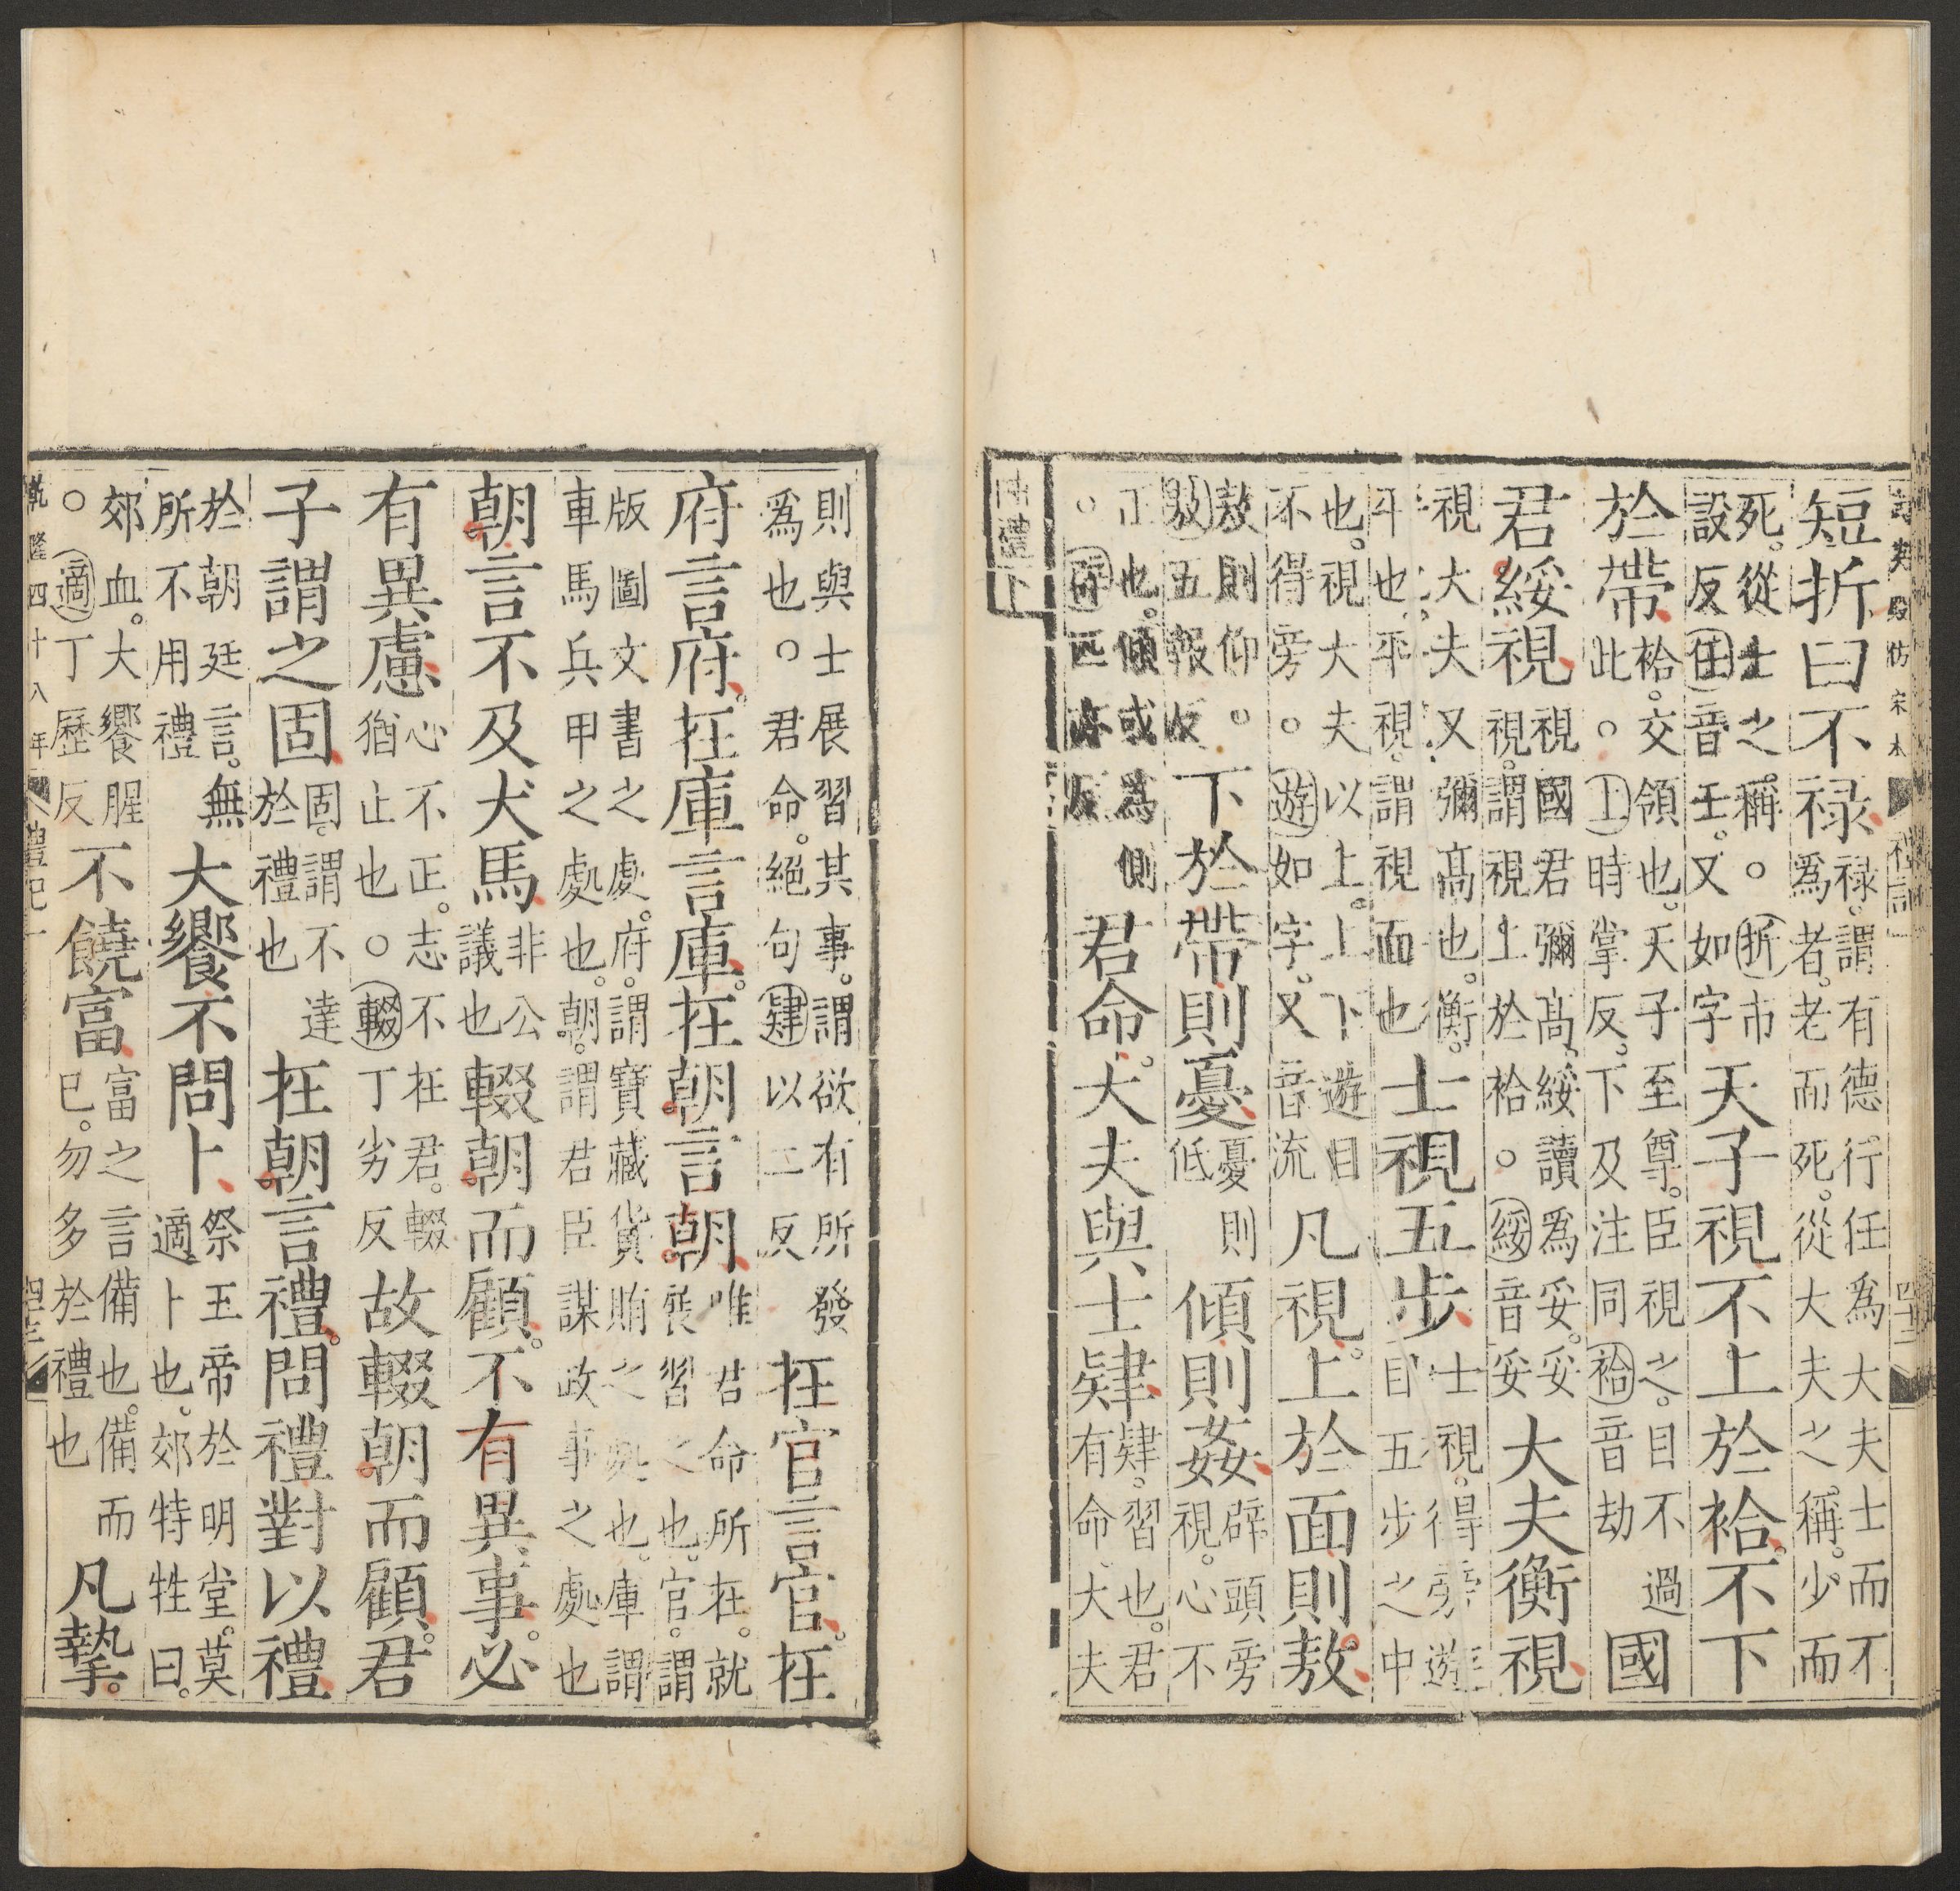 武英殿仿宋本 禮記一 四十二
短折曰不禄禄。謂有德行任爲大夫士而不爲者。老而死。從大夫之。稱。少。而
死。從士之。稱。○折市設反任音壬。又如字天子視不上於袷。不下
於帶袷。交領也。天子至尊。臣視之。目不過此。○上時掌反。下及注同袷音劫國
君綏視視國君彌高。綏讀爲妥。妥視。謂視上於袷。○綏音妥大夫衡視
視大夫又彌高也。衡。平也。平視。謂視面也士視五步士視。得旁遊目五步之中
也。視大夫以上。上下遊目不得旁。○遊如字。又音流凡視。上於面則敖
敖則仰。○敖五報反下於帶則憂憂則低傾則姦辟頭旁視。心不
正也。傾或爲側○辟匹亦反君命。大夫與士肄肄。習也。君有命大夫
曲禮下
則與士展習其事。謂欲有所發爲也。○君命。絕句肄以二反在官言官。在
府言府。在庫言庫。在朝言朝唯君命所在。就展習之也。官。謂
版圖文書之處。府。謂寶藏貨賄之處也。庫。謂車馬兵甲之處也。朝。謂君臣謀政事之處也
朝言不及犬馬非公議也輟朝而顧。不有異事。必
有異慮心不正。志不在君。輟猶止也。○輟丁劣反故輟朝而顧。君
子謂之固固。謂不達於禮也在朝言禮。問禮對以禮
於朝廷言。無所不用禮大饗不問卜祭五帝於明堂。莫適卜也。郊特牲曰。
郊血。大饗腥○適丁歷反不饒富富之言備也。備而已。勿多於禮也凡摯。
乾隆四十八年 禮記一 四十三